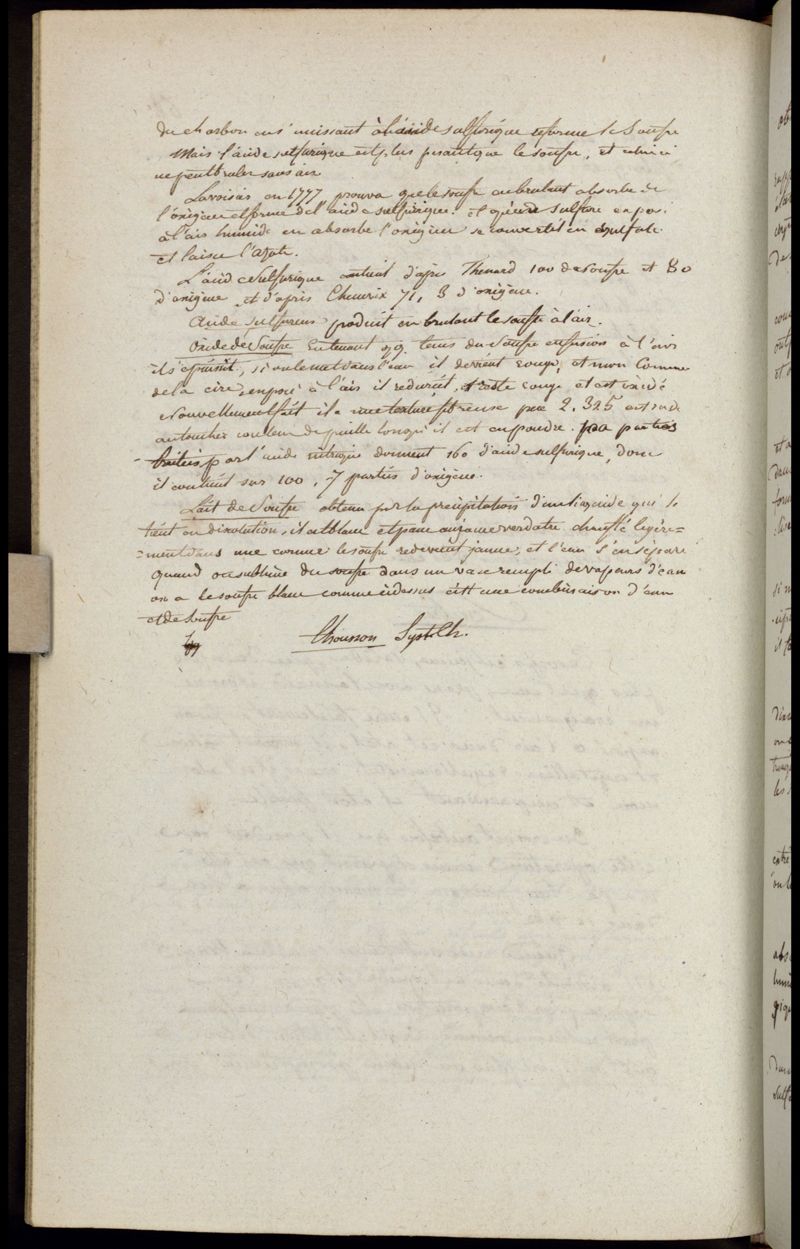 du charbon en s'unissant à l'acide sulfurique reforme le Soufre
Mais l'acide sulfurique est plus pesant que le soufre, et celui ci
ne peut bruler sans air
Lavoisier en 1777 prouva que le soufre en brulant absorbe de
l'oxigene et forme de l'acide sulfurique. et qu'un sulfure exposé
à l'air humide en absorbe l'oxigene se convertit en sulfate
et laisse l'azote.
L'acide Sulfurique contient d'apres Thenard 100 de soufre et 80
d'oxigene et d'apris Chenevix 71, 3 d'oxigene.
Acide sulfureux produit en brulant le soufre à l'air.
Oxide de Soufre En tenant qq. tems du Soufre en fusion à l'air
il s'épaissit, si on le met dans l'eau il devient rouge, et mou Comme
de la cire, exposé à l'air il redurcit, et reste rouge et est oxidé
Nouvellement fait il a une texture fibreuse pese 2.325 est rude
au toucher couleur de paille lorsqu'il est en poudre.
par l'acide nitrique donnent 160 d'acide sulfurique, donc
il contient sur 100, 7 parties d'oxigene.
Lait de Soufre obtenu par la precipitation d'un liquide qui le
tient en dissolution, il est blanc et passe au jaune verdatre chauffé legere=
=ment dans une cornue le soufre redevient jaune, et l'eau s'en séparé
quand on sublime du soufre dans un vase rempli de vapeurs d'eau
on a le soufre blanc comme cidessus c'est une combinaison d'eau
et de soufre
Thomson Syst. Ch.